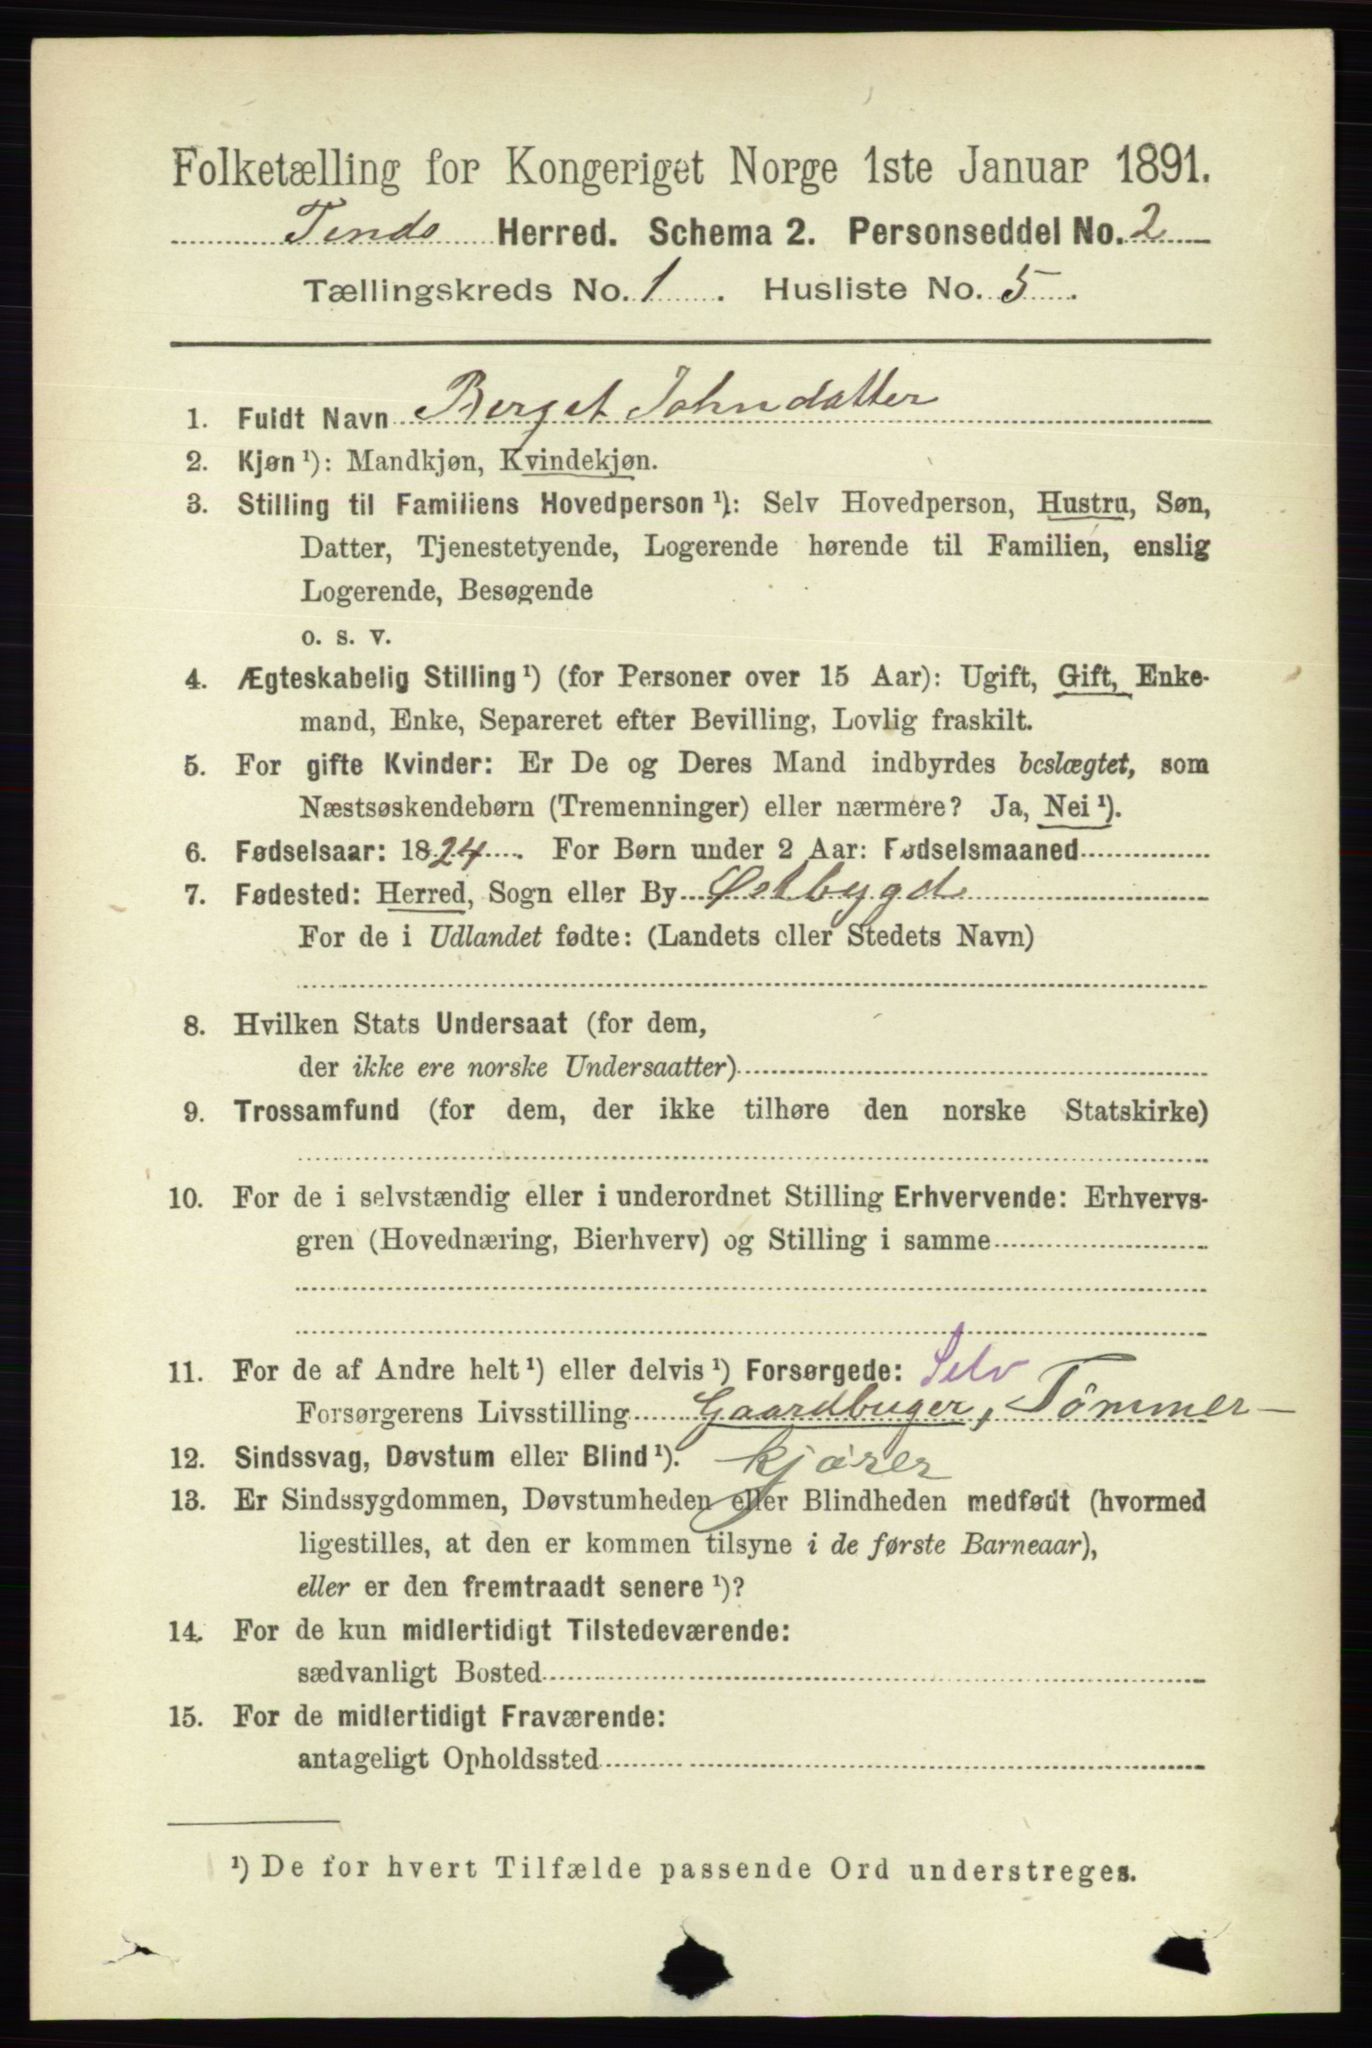 Folketælling for Kongeriget Norge 1ste Januar 1891.
Tinds Herred. Schema 2. Personseddel No. 2
Tællingskreds No. 1. Husliste No. 5.
1. Fuldt Navn Berget Johndatter
2. Kjøn ¹): Mandkjøn, Kvindekjøn.
3. Stilling til Familiens Hovedperson ¹): Selv Hovedperson, Hustru, Søn,
Datter, Tjenestetyende, Logerende hørende til Familien, enslig
Logerende, Besøgende
o. s. v.
4. Ægteskabelig Stilling ¹) (for Personer over 15 Aar): Ugift, Gift, Enke-
mand, Enke, Separeret efter Bevilling, Lovlig fraskilt.
5. For gifte Kvinder: Er De og Deres Mand indbyrdes beslægtet, som
Næstsøskendebørn (Tremenninger) eller nærmere? Ja, Nei ¹).
6. Fødselsaar: 1824. For Børn under 2 Aar: Fødselsmaaned
7. Fødested: Herred, Sogn eller By Østbygd
For de i Udlandet fødte: (Landets eller Stedets Navn)
8. Hvilken Stats Undersaat (for dem,
der ikke ere norske Undersaatter)
9. Trossamfund (for dem, der ikke tilhøre den norske Statskirke)
10. For de i selvstændig eller i underordnet Stilling Erhvervende: Erhvervs-
gren (Hovednæring, Bierhverv) og Stilling i samme
11. For de af Andre helt ¹) eller delvis ¹) Forsørgede: Selv
Forsørgerens Livsstilling Gaardbuger, Tömmer-
kjører
12. Sindssvag, Døvstum eller Blind ¹).
13. Er Sindssygdommen, Døvstumheden eller Blindheden medfødt (hvormed
ligestilles, at den er kommen tilsyne i de første Barneaar),
eller er den fremtraadt senere ¹)?
14. For de kun midlertidigt Tilstedeværende:
sædvanligt Bosted
15. For de midlertidigt Fraværende:
antageligt Opholdssted
¹) De for hvert Tilfælde passende Ord understreges.